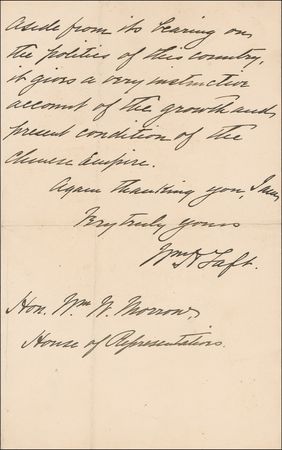 Aside from its bearing on
the politics of this country,
it gives a very instructive
account of the growth and
present condition of the
Chinese Empire.
Again thanking you, I am,
Very truly yours
Wm H Taft.
Hon. Wm. W. Morrow,
House of Representatives.